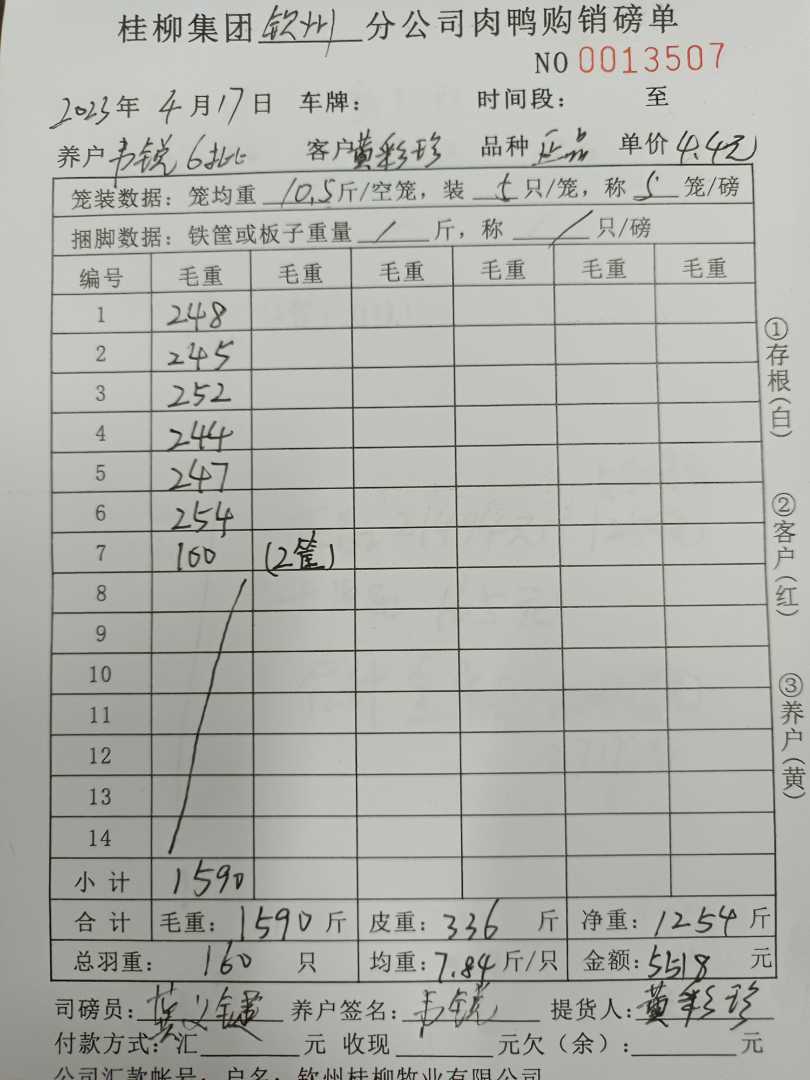 桂柳集团钦州分公司肉鸭购销磅单
NO 0013507
2023年 4月17日 车牌： 时间段： 至
养户韦锐6批 客户黄彩珍 品种正品 单价4.4元
笼装数据：笼均重 10.5斤/空笼，装 5只/笼，称 5 笼/磅
捆脚数据：铁筐或板子重量 / 斤，称 / 只/磅
编号 毛重 毛重 毛重 毛重 毛重 毛重
1 248
2 245
3 252
4 244
5 247
6 254
7 100 (2筐)
8
9
10
11
12
13
14
小计 1590
合计 毛重：1590斤 皮重：336 斤 净重：1254斤
总羽重： 160 只 均重：7.84斤/只 金额：5518 元
司磅员：黄义 养户签名：韦锐 提货人：黄彩珍
付款方式：汇 元 收现 元欠（余）： 元
公司汇款帐号：户名：钦州桂柳牧业有限公司
①存根（白）
②客户（红）
③养户（黄）